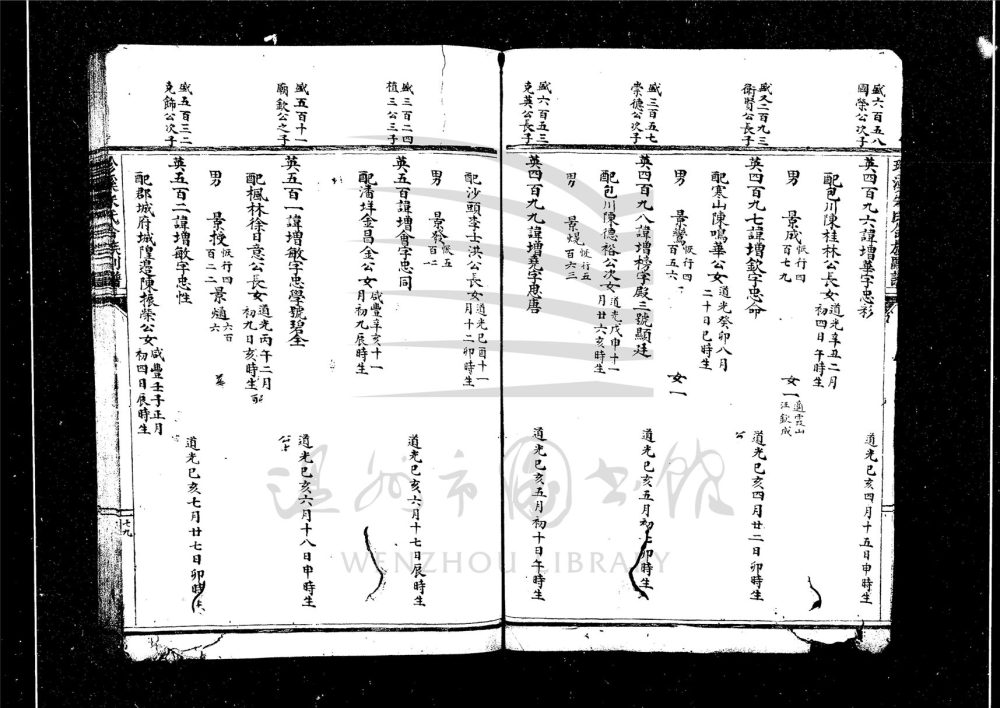 盛六百五八
國榮公次子
英四百九六諱增華字忠衫
道光已亥四月十五日申時生
配包川陳桂林公長女
道光辛丑二月
初四日午時生
男
景成
恆行四
百七九
女一
適霞山
汪欽成
盛又二百九三
衛賢公長子
英四百九七諱增欽字忠命
道光已亥四月廿二日卯時生
配寒山陳鳴華公女
道光癸卯八月
二十日巳時生
男
景鸞
恆行四
百五六
女一
盛三百五七
崇德公次子
英四百九八諱增榜字殿二號顯廷
道光已亥五月初卯時生
配包川陳德裕公次女
道光戊申十一
月廿六亥時生
男
景煜
恆行五
百六二
盛六百五三
克英公長子
英四百九九諱增堯字忠唐
道光已亥五月初十日午時生
配沙頭李士洪公長女
道光已酉十一
月十二卯時生
男
景發
恆五
百二
盛三百二四
植三公三子
英五百諱增會字忠同
道光已亥六月十七日辰時生
配潘垟金昌金公女
咸豐辛亥十一
月初九辰時生
盛五百十一
顯欽公之子
英五百一諱增敏字忠學號碧全
道光已亥六月十八日申時生
配楓林徐日意公長女
道光丙午二月
初九日亥時生
男
景授
恆行四
百二二
景熵
六百
六
盛五百三二
克飾公次子
英五百二諱增敏字忠性
道光已亥七月廿七日卯時生
配郡城府城隍邊陳振榮公女
咸豐壬子正月
初四日辰時生
七九
溫州市圖書館
WENZHOU LIBRARY